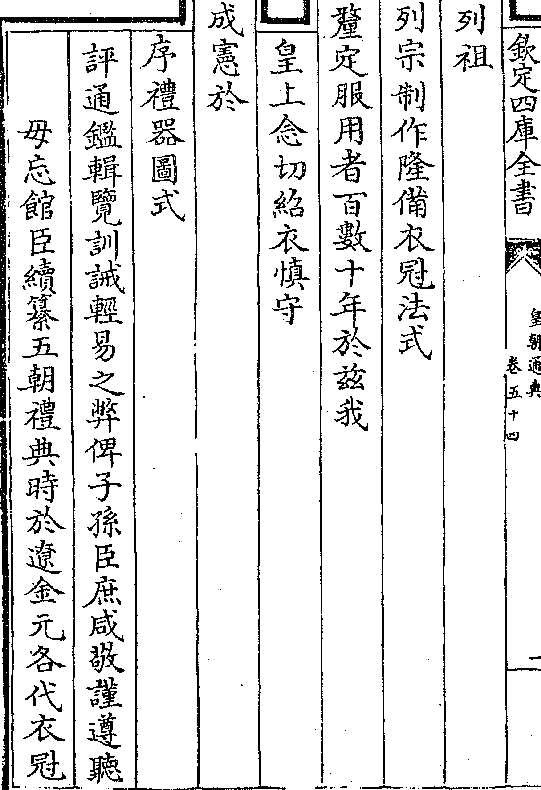 欽定四庫全書
皇朝通典
卷五十四
二
列祖
列宗制作隆備衣冠法式
釐定服用者百數十年於兹我
皇上念切紹衣慎守
成憲於
序禮器圖式
評通鑑輯覽訓誡輕易之弊俾子孫臣庶咸敬謹遵聽
毋忘館臣續纂五朝禮典時於遼金元各代衣冠